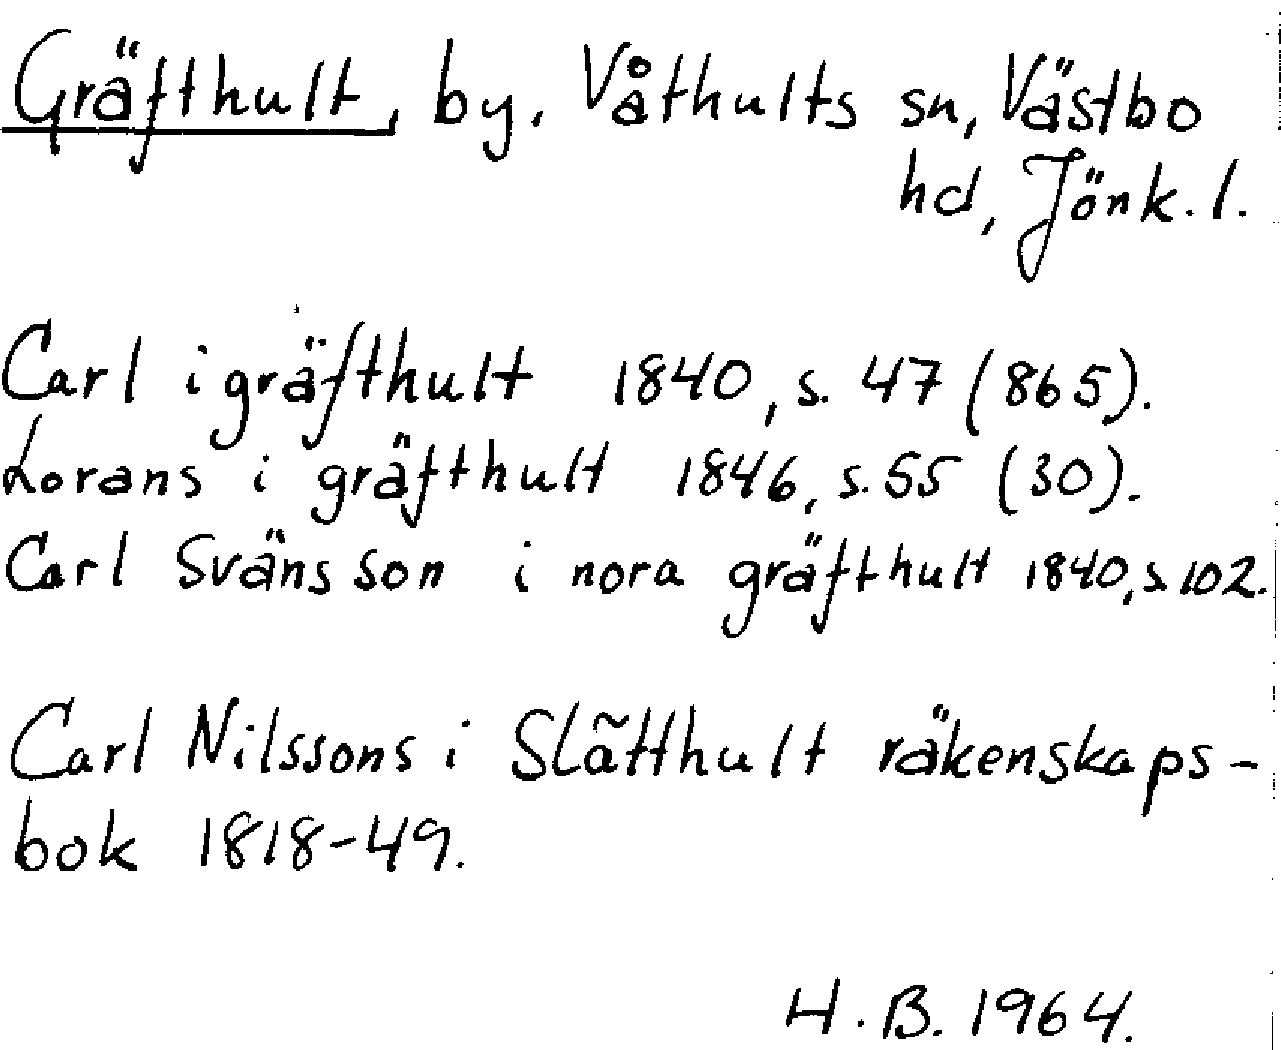 Gräfthult, by. Våthults sn, Västbo
hd, Jönk. l.
Carl i gräfthult 1840, s. 47 (865).
Lorans i gräfthult 1846, s. 55 (30).
Carl Sväns son i nora gräfthult 1840, s 102.
Carl Nilssons i Slätthult räkenskaps-
bok 1818-49.
H. B. 1964.